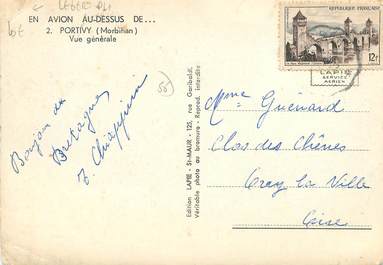 LEGER PLI
6€
EN AVION AU-DESSUS DE...
2. PORTIVY (Morbihan)
Vue générale
Bonjour de
Bretagne
Edition LAPIE - St-MAUR - 125, rue Garibaldi.
Véritable photo au bromure - Reprod. interdite
REPUBLIQUE FRANÇAISE
12F
LAPIE
SERVICE
AERIEN
Mme Guénard
Clos des Chênes
Crey la Ville
Oise